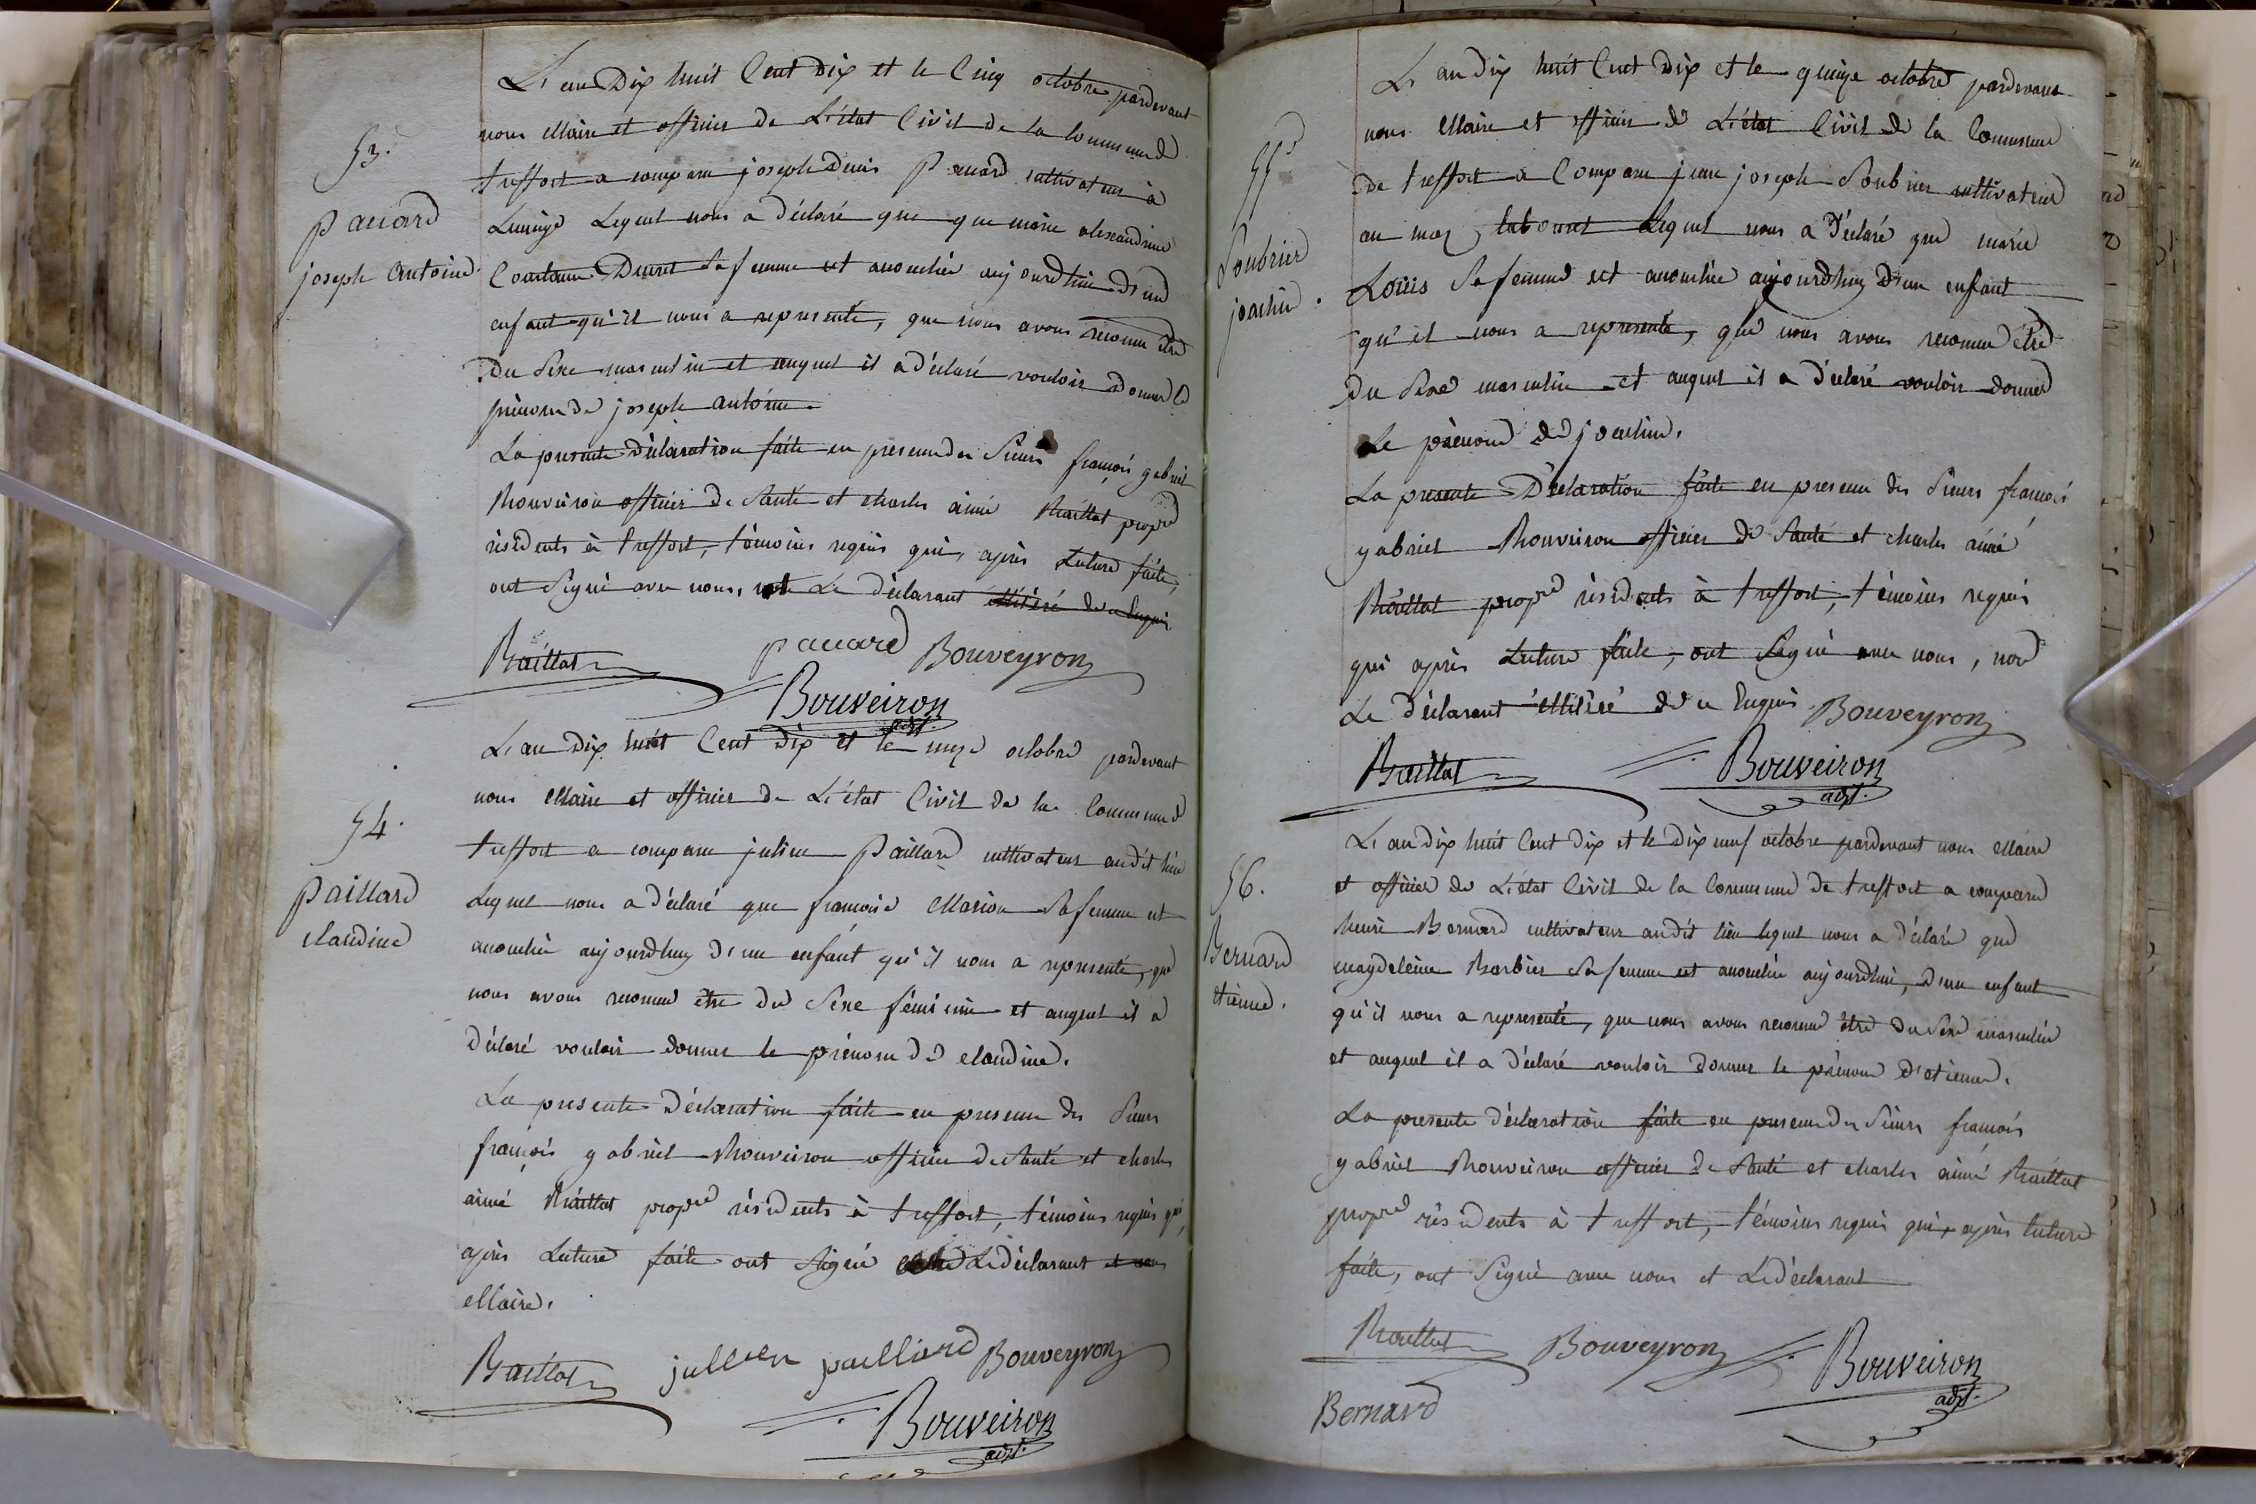 53.
paccard
joseph Antoine
L'an Dix huit Cent dix et le Cinq octobre pardevant
nous Maire et officier de L'état Civil de la Commune de
treffort a comparu joseph Denis Paccard cultivateur à
Lequel nous a déclaré que que marie alexandrine
Sa femme est accouchée aujourdhui d'un
enfant qu'il nous a representé, que nous avons reconnu être
du Sexe masculin et auquel il a déclaré vouloir donner le
prénom de joseph antoine.
La presente déclaration faite en presence des Sieurs françois gabriel
Bouveiron officier de Santé et charles aimé Baillat propre
résidents à treffort, témoins requis qui, après Lecture faite,
ont Signé avec nous, Le déclarant illitéré de ce Enquis
Baillat paccard Bouveyron
Bouveiron
adjt.
54.
paillard
claudine
L'an Dix huit Cent dix et le onze octobre pardevant
nous Maire et officier de L'état Civil de la Commune de
treffort a comparu julien Paillard cultivateur audit lieu
Lequel nous a déclaré que françoise Marion Sa femme est
accouchée aujourdhuy d'un enfant qu'il nous a representé, que
nous avons reconnu être du Sexe féminin et auquel il a
déclaré vouloir donner le prénom de claudine.
La presente déclaration faite en presence des Sieurs
françois gabriel Bouveiron officier de Santé et charles
aimé Baillat propre résidents à treffort, témoins requis qui,
après Lecture faite ont Signé Le déclarant et nous
Maire.
Baillat jullien paillard Bouveyron
Bouveiron
adjt.
55
Soubrier
joachin.
L'an dix huit Cent dix et le quinze octobre pardevant
nous Maire et officier de L'état Civil de la Commune
de treffort a Comparu jean joseph Soubrier cultivateur
au mas Lequel nous a déclaré que marie
Louis Sa femme est accouchée aujourdhuy d'un enfant
qu'il nous a representé, que nous avons reconnu être
du Sexe masculin et auquel il a déclaré vouloir donner
Le prénom de joachin.
La presente Déclaration faite en presence des Sieurs françois
gabriel Bouveiron officier de Santé et charles aimé
Baillat propre résidents à treffort, témoins requis
qui après Lecture faite, ont Signé avec nous, non
Le déclarant illitéré de ce Enquis Bouveyron
Baillat Bouveiron
adjt.
56.
Bernard
etienne.
L'an dix huit Cent dix et le dix neuf octobre pardevant nous Maire
et officier de L'état Civil de la Commune de treffort a comparu
henri Bernard cultivateur audit lieu lequel nous a déclaré que
magdeleine Barbier Sa femme est accouchée aujourdhui, d'un enfant
qu'il nous a representé, que nous avons reconnu être du Sexe masculin
et auquel il a déclaré vouloir donner le prénom d'etienne.
La presente déclaration faite en presence des Sieurs françois
gabriel Bouveiron officier de Santé et charles aimé Baillat
propre résidents à treffort, témoins requis qui, après lecture
faite, ont Signé avec nous et Le déclarant
Baillat Bouveyron Bouveiron
adjt.
Bernard